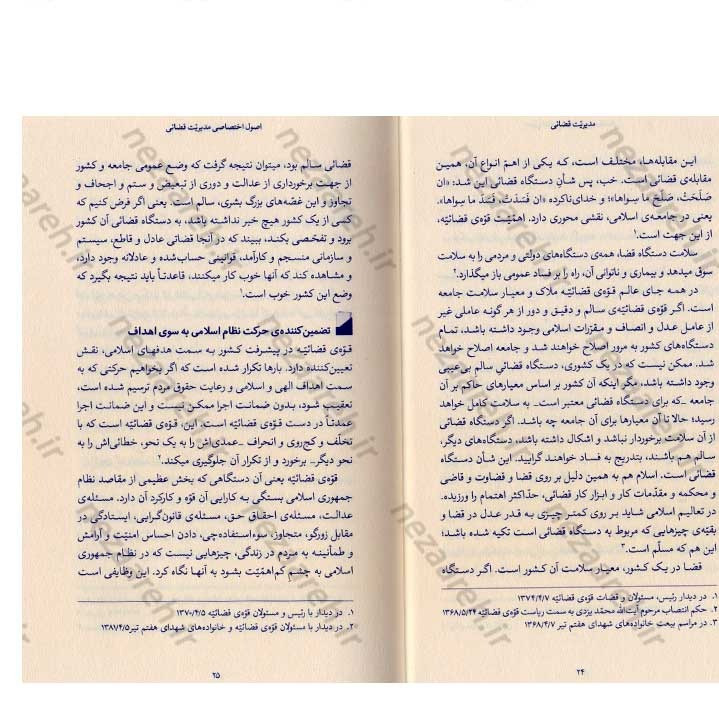 مدیریّت قضائی
این مقابله‌ها، مختلف است، که یکی از اهمّ انواع آن، همین
مقابله‌ی قضائی است. خب، پس شأن دستگاه قضائی این شد: «ان
صَلَحَتْ، صَلَحَ ما سِواها»؛ و خدای‌ناکرده «ان فَسَدَتْ، فَسَدَ ما سِواها».
یعنی در جامعه‌ی اسلامی، نقشی محوری دارد. اهمّیّت قوّه‌ی قضائیّه،
از این جهت است.۱
سلامت دستگاه قضا، همه‌ی دستگاه‌های دولتی و مردمی را به سلامت
سوق میدهد و بیماری و ناتوانی آن، راه را بر فساد عمومی باز میگذارد.۲
در همه جای عالم قوّه‌ی قضائیّه ملاک و معیار سلامت جامعه
است. اگر قوّه‌ی قضائیّه‌ی سالم و دقیق و دور از هر گونه عاملی غیر
از عامل عدل و انصاف و مقرّرات اسلامی وجود داشته باشد، تمام
دستگاه‌های کشور به مرور اصلاح خواهند شد و جامعه اصلاح خواهد
شد. ممکن نیست که در یک کشوری، دستگاه قضائیِ سالمِ بی‌عیبی
وجود داشته باشد، مگر اینکه آن کشور بر اساس معیارهای حاکم بر آن
جامعه _که برای دستگاه قضائی معتبر است_ به سلامت کامل خواهد
رسید؛ حالا تا آن معیارها برای آن جامعه چه باشد. اگر دستگاه قضائی
از آن سلامت برخوردار نباشد و اشکال داشته باشد، دستگاه‌های دیگر،
سالم هم باشند، بتدریج به فساد خواهند گرایید. این شأن دستگاه
قضائی است. اسلام هم به همین دلیل بر روی قضا و قضاوت و قاضی
و محکمه و مقدّمات کار و ابزار کار قضائی، حدّاکثر اهتمام را ورزیده.
در تعالیم اسلامی شاید بر روی کمتر چیزی به قدر عدل در قضا و
بقیّه‌ی چیزهایی که مربوط به دستگاه قضائی است تکیه شده باشد؛
این هم که مسلّم است.۳
قضا در یک کشور، معیار سلامت آن کشور است. اگر دستگاه
۱. در دیدار رئیس، مسئولان و قضات قوّه‌ی قضائیّه ۱۳۷۴/۴/۷
۲. حکم انتصاب مرحوم آیت‌الله محمّد یزدی به سمت ریاست قوّه‌ی قضائیّه ۱۳۶۸/۵/۲۴
۳. در مراسم بیعت خانواده‌های شهدای هفتم تیر ۱۳۶۸/۴/۷
۲۴
اصول اختصاصی مدیریّت قضائی
قضائی سالم بود، میتوان نتیجه گرفت که وضع عمومی جامعه و کشور
از جهت برخورداری از عدالت و دوری از تبعیض و ستم و اجحاف و
تجاوز و این غصّه‌های بزرگ بشری، سالم است. یعنی اگر فرض کنیم که
کسی از یک کشور هیچ خبر نداشته باشد، به دستگاه قضائی آن کشور
برود و تفحّصی بکند، ببیند که در آنجا قضاتی عادل و قاطع، سیستم
و سازمانی منسجم و کارآمد، قوانینی حساب‌شده و عادلانه وجود دارد،
و مشاهده کند که آنها خوب کار میکنند، قاعدتاً باید نتیجه بگیرد که
وضع این کشور خوب است.۱
تضمین‌کننده‌ی حرکت نظام اسلامی به سوی اهداف
قوّه‌ی قضائیّه در پیشرفت کشور به سمت هدفهای اسلامی، نقش
تعیین‌کننده دارد. بارها تکرار شده است که اگر بخواهیم حرکتی که به
سمت اهداف الهی و اسلامی و رعایت حقوق مردم ترسیم شده است،
تعقیب شود، بدون ضمانت اجرا ممکن نیست و این ضمانت اجرا
عمدتاً در دست قوّه‌ی قضائیّه است. این، قوّه‌ی قضائیّه است که با
تخلّف و کج‌روی و انحراف _عمدی‌اش را به یک نحو، خطائی‌اش را به
نحو دیگر_ برخورد و از تکرار آن جلوگیری میکند.۲
قوّه‌ی قضائیّه یعنی آن دستگاهی که بخش عظیمی از مقاصد نظام
جمهوری اسلامی بستگی به کارایی آن قوّه و کارکرد آن دارد. مسئله‌ی
عدالت، مسئله‌ی احقاق حق، مسئله‌ی قانون‌گرایی، ایستادگی در
مقابل زورگو، متجاوز، سوءاستفاده‌چی، دادن احساس امنیّت و آرامش
و طمأنینه به مردم در زندگی، چیزهایی نیست که در نظام جمهوری
اسلامی به چشم کم‌اهمّیّت بشود به آنها نگاه کرد. این وظایفی است
۱. در دیدار با رئیس و مسئولان قوّه‌ی قضائیّه ۱۳۷۰/۴/۵
۲. در دیدار با مسئولان قوّه‌ی قضائیّه و خانواده‌های شهدای هفتم تیر ۱۳۸۷/۴/۵
۲۵
nezareh.ir